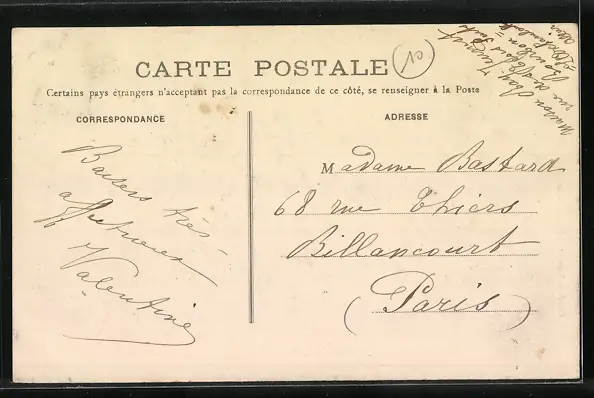 CARTE POSTALE
10
Certains pays étrangers n'acceptant pas la correspondance de ce côté, se renseigner à la Poste
CORRESPONDANCE
Baisers très-
affectueux
Valentine
ADRESSE
Madame Bastard
68 rue Thiers
Billancourt
(Paris)
Maison
Bourbon
Allier